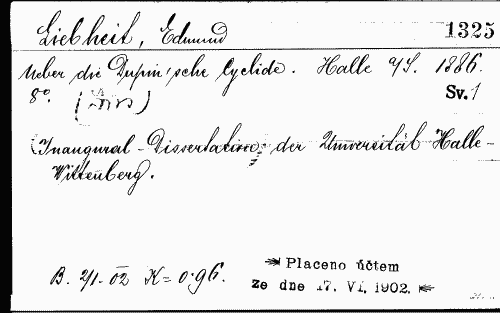 Liebheit, Edmund 1325
Ueber die Dupin'sche Cyclide. Halle a/S. 1886.
8°. (Diss) Sv. 1
(Inaugural-Dissertation der Universität Halle-
Wittenberg.
B. 2/1. 02 K = 0.96.
Placeno účtem
ze dne 17. VI. 1902.